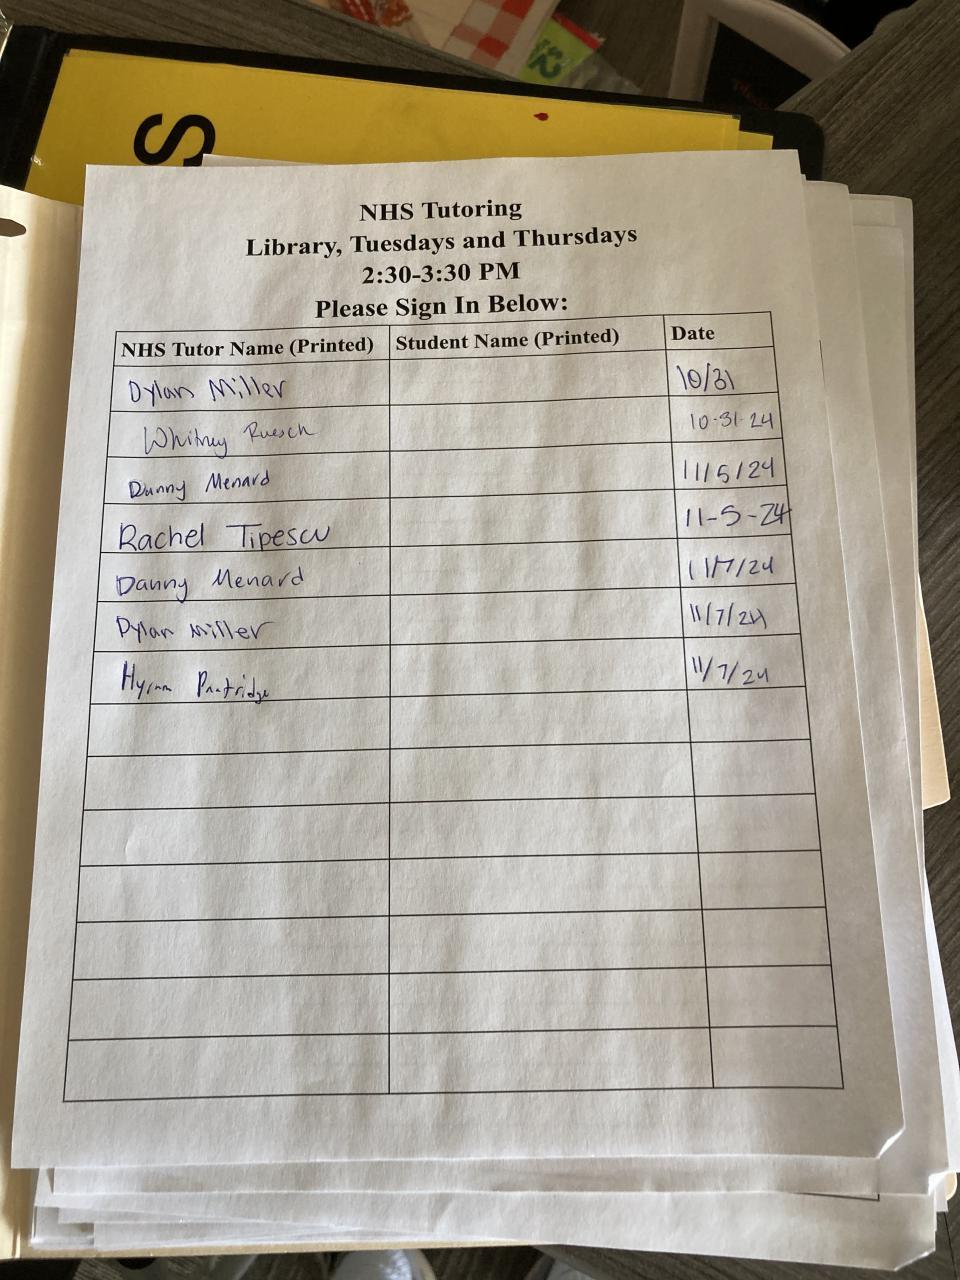 S
NHS Tutoring
Library, Tuesdays and Thursdays
2:30-3:30 PM
Please Sign In Below:
NHS Tutor Name (Printed) Student Name (Printed) Date
Dylan Miller 10/31
Whitney Ruesch 10-31-24
Danny Menard 11/5/24
Rachel Tipescu 11-5-24
Danny Menard 11/7/24
Dylan Miller 11/7/24
Partridge 11/7/24